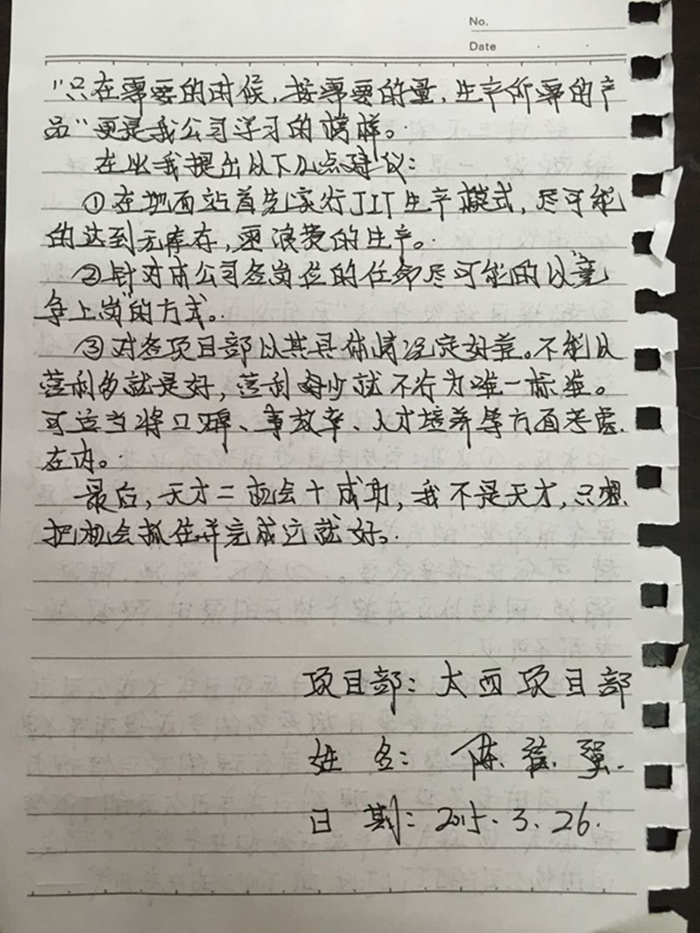 No.
Date
"只在需要的时候,按需要的量,生产所需的产
品"更是我公司学习的榜样。
在此我提出以下几点建议:
①在地面站首先实行JIT生产模式,尽可能
的达到无库存,无浪费的生产。
②针对本公司各岗位的任命尽可能的以"竞
争上岗"的方式。
③对各项目部以其具体情况定好差。不能以
营利多就是好,营利少就不行为唯一标准。
可适当将口碑、事故率、人才培养等方面考虑
在内。
最后,天才=机会+成功,我不是天才,只想
把机会抓住并完成它就好。
项目部:大西项目部
姓名:陈强
日期:2015.3.26.